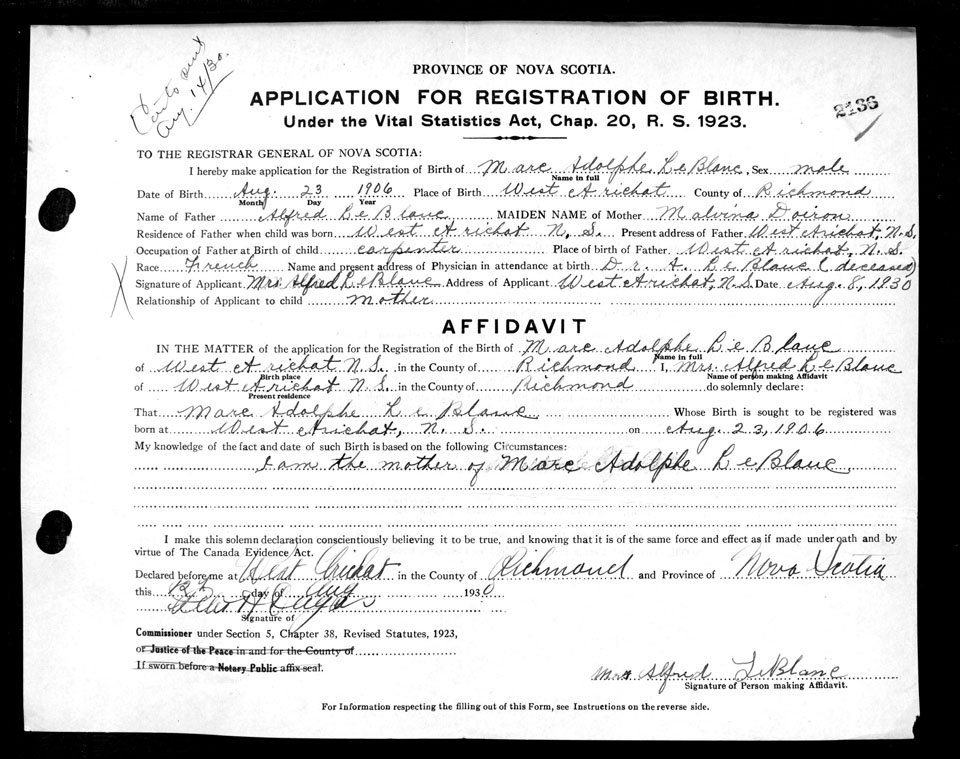 Aug. 14/30.
PROVINCE OF NOVA SCOTIA.
APPLICATION FOR REGISTRATION OF BIRTH.
2186
Under the Vital Statistics Act, Chap. 20, R. S. 1923.
TO THE REGISTRAR GENERAL OF NOVA SCOTIA:
I hereby make application for the Registration of Birth of Marc Adolphe LeBlanc Sex male
Name in full
Date of Birth Aug. 23 1906 Place of Birth West Arichat County of Richmond
Month Day Year
Name of Father Alfred LeBlanc MAIDEN NAME of Mother Malvina Doiron
Residence of Father when child was born West Arichat N. S. Present address of Father West Arichat, N. S.
Occupation of Father at Birth of child carpenter Place of birth of Father West Arichat, N. S.
Race French Name and present address of Physician in attendance at birth Dr. A. LeBlanc (deceased)
Signature of Applicant Mrs Alfred LeBlanc Address of Applicant West Arichat, N.S. Date Aug. 8, 1930
Relationship of Applicant to child mother
AFFIDAVIT
IN THE MATTER of the application for the Registration of the Birth of Marc Adolphe LeBlanc
Name in full
of West Arichat N. S. in the County of Richmond I, Mrs. Alfred LeBlanc
Birth place Name of person making Affidavit
of West Arichat N. S. in the County of Richmond do solemnly declare:
Present residence
That Marc Adolphe LeBlanc Whose Birth is sought to be registered was
born at West Arichat, N. S. on Aug. 23, 1906
My knowledge of the fact and date of such Birth is based on the following Circumstances:
I am the mother of Marc Adolphe LeBlanc.
I make this solemn declaration conscientiously believing it to be true, and knowing that it is of the same force and effect as if made under oath and by
virtue of The Canada Evidence Act.
Declared before me at West Arichat in the County of Richmond and Province of Nova Scotia
this day of Aug 1930
Signature of
Commissioner under Section 5, Chapter 38, Revised Statutes, 1923,
or Justice of the Peace in and for the County of
If sworn before a Notary Public affix seal.
Mrs Alfred LeBlanc
Signature of Person making Affidavit.
For Information respecting the filling out of this Form, see Instructions on the reverse side.